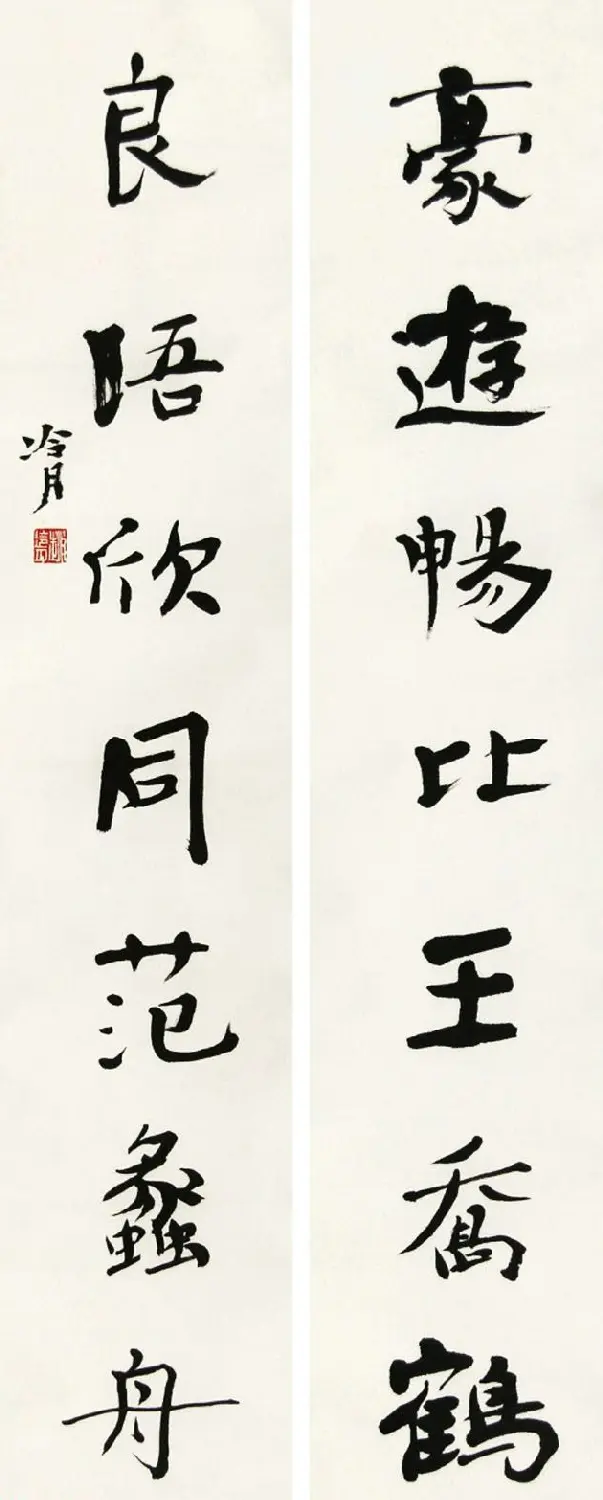 豪遊暢比王喬鶴
良晤欣同范蠡舟
冷月